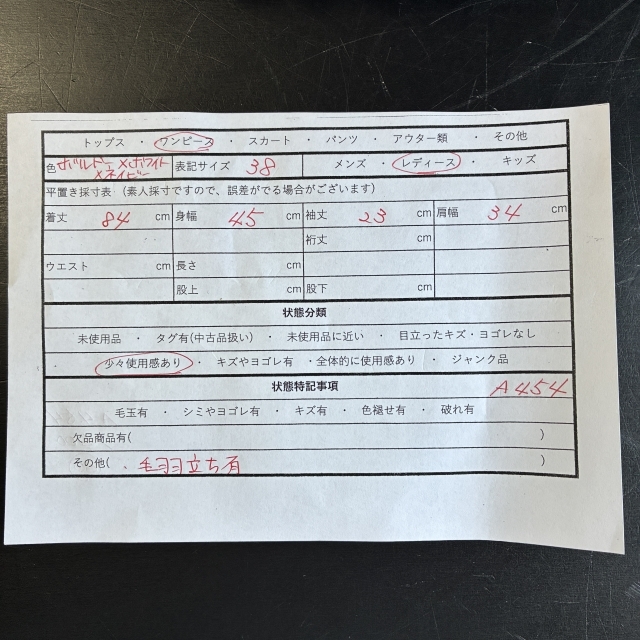 トップス ・ ワンピース ・ スカート ・ パンツ ・ アウター類 ・ その他
色 ボルドー×ホワイト×ネイビー 表記サイズ 38 メンズ ・ レディース ・ キッズ
平置き採寸表 (素人採寸ですので、誤差がでる場合がございます)
着丈 84 cm 身幅 45 cm 袖丈 23 cm 肩幅 34 cm
裄丈 cm
ウエスト cm 長さ cm
股上 cm 股下 cm
状態分類
未使用品 ・ タグ有(中古品扱い) ・ 未使用品に近い ・ 目立ったキズ・ヨゴレなし
少々使用感あり ・ キズやヨゴレ有 ・全体的に使用感あり ・ ジャンク品
状態特記事項 A454
毛玉有 ・ シミやヨゴレ有 ・ キズ有 ・ 色褪せ有 ・ 破れ有
欠品商品有( )
その他( ・毛羽立ち有 )